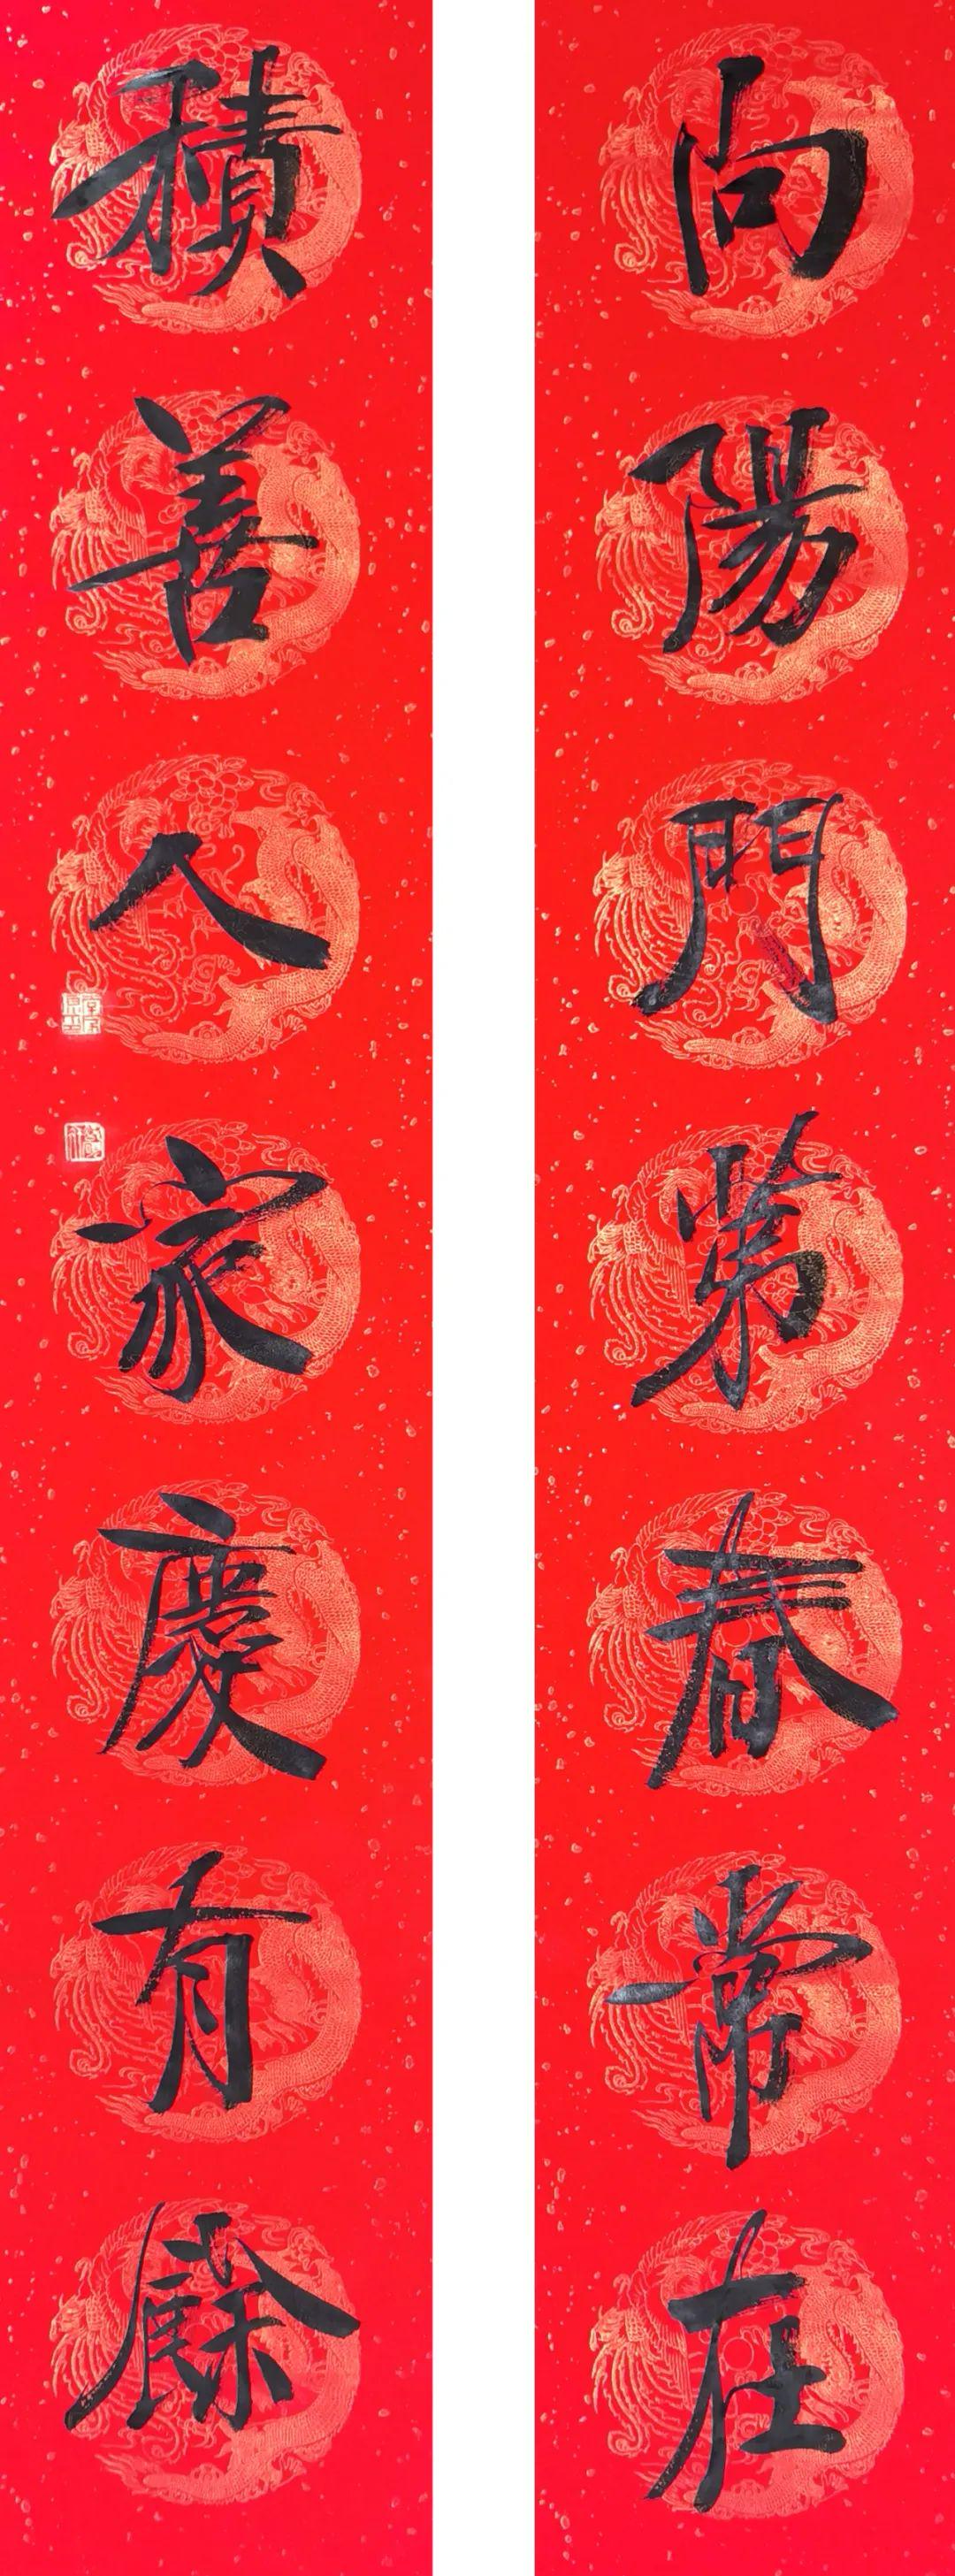 向陽門第春常在
積善人家慶有餘